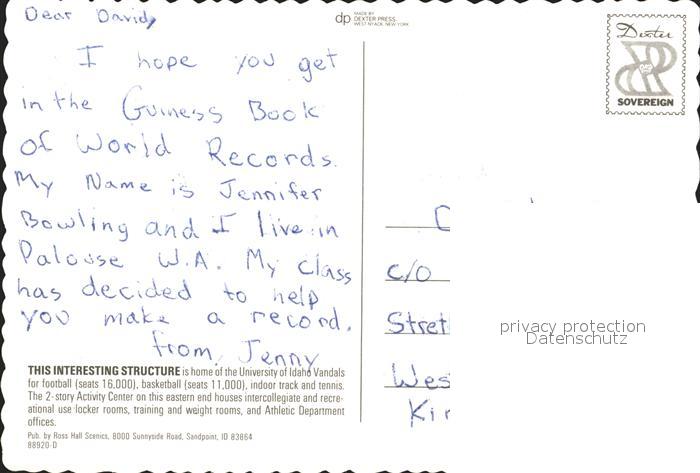 Dear David,
I hope you get
in the Guiness Book
of World Records.
My Name is Jennifer
Bowling and I live in
Palouse W.A. My class
has decided to help
you make a record.
from, Jenny
THIS INTERESTING STRUCTURE is home of the University of Idaho Vandals
for football (seats 16,000), basketball (seats 11,000), indoor track and tennis.
The 2-story Activity Center on this eastern end houses intercollegiate and recre-
ational use locker rooms, training and weight rooms, and Athletic Department
offices.
Pub. by Ross Hall Scenics, 8000 Sunnyside Road, Sandpoint, ID 83864
88920-D
dp MADE BY
DEXTER PRESS
WEST NYACK, NEW YORK
Dexter
SOVEREIGN
c/o
Stret
Wes
Kir
privacy protection
Datenschutz